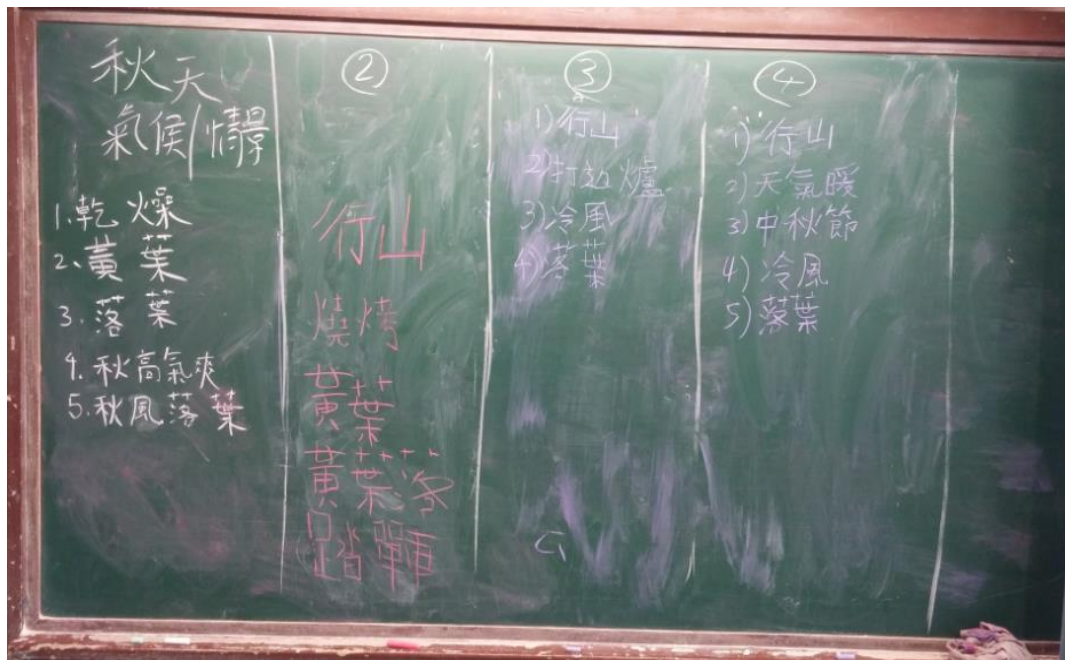 秋天
氣侯/情景
1.乾燥
2.黃葉
3.落葉
4.秋高氣爽
5.秋風落葉
②
行山
燒烤
黃葉
黃葉落
踏單車
③
1)行山
2)打边爐
3)冷風
4)落葉
④
1)行山
2)天氣暖
3)中秋節
4)冷風
5)落葉